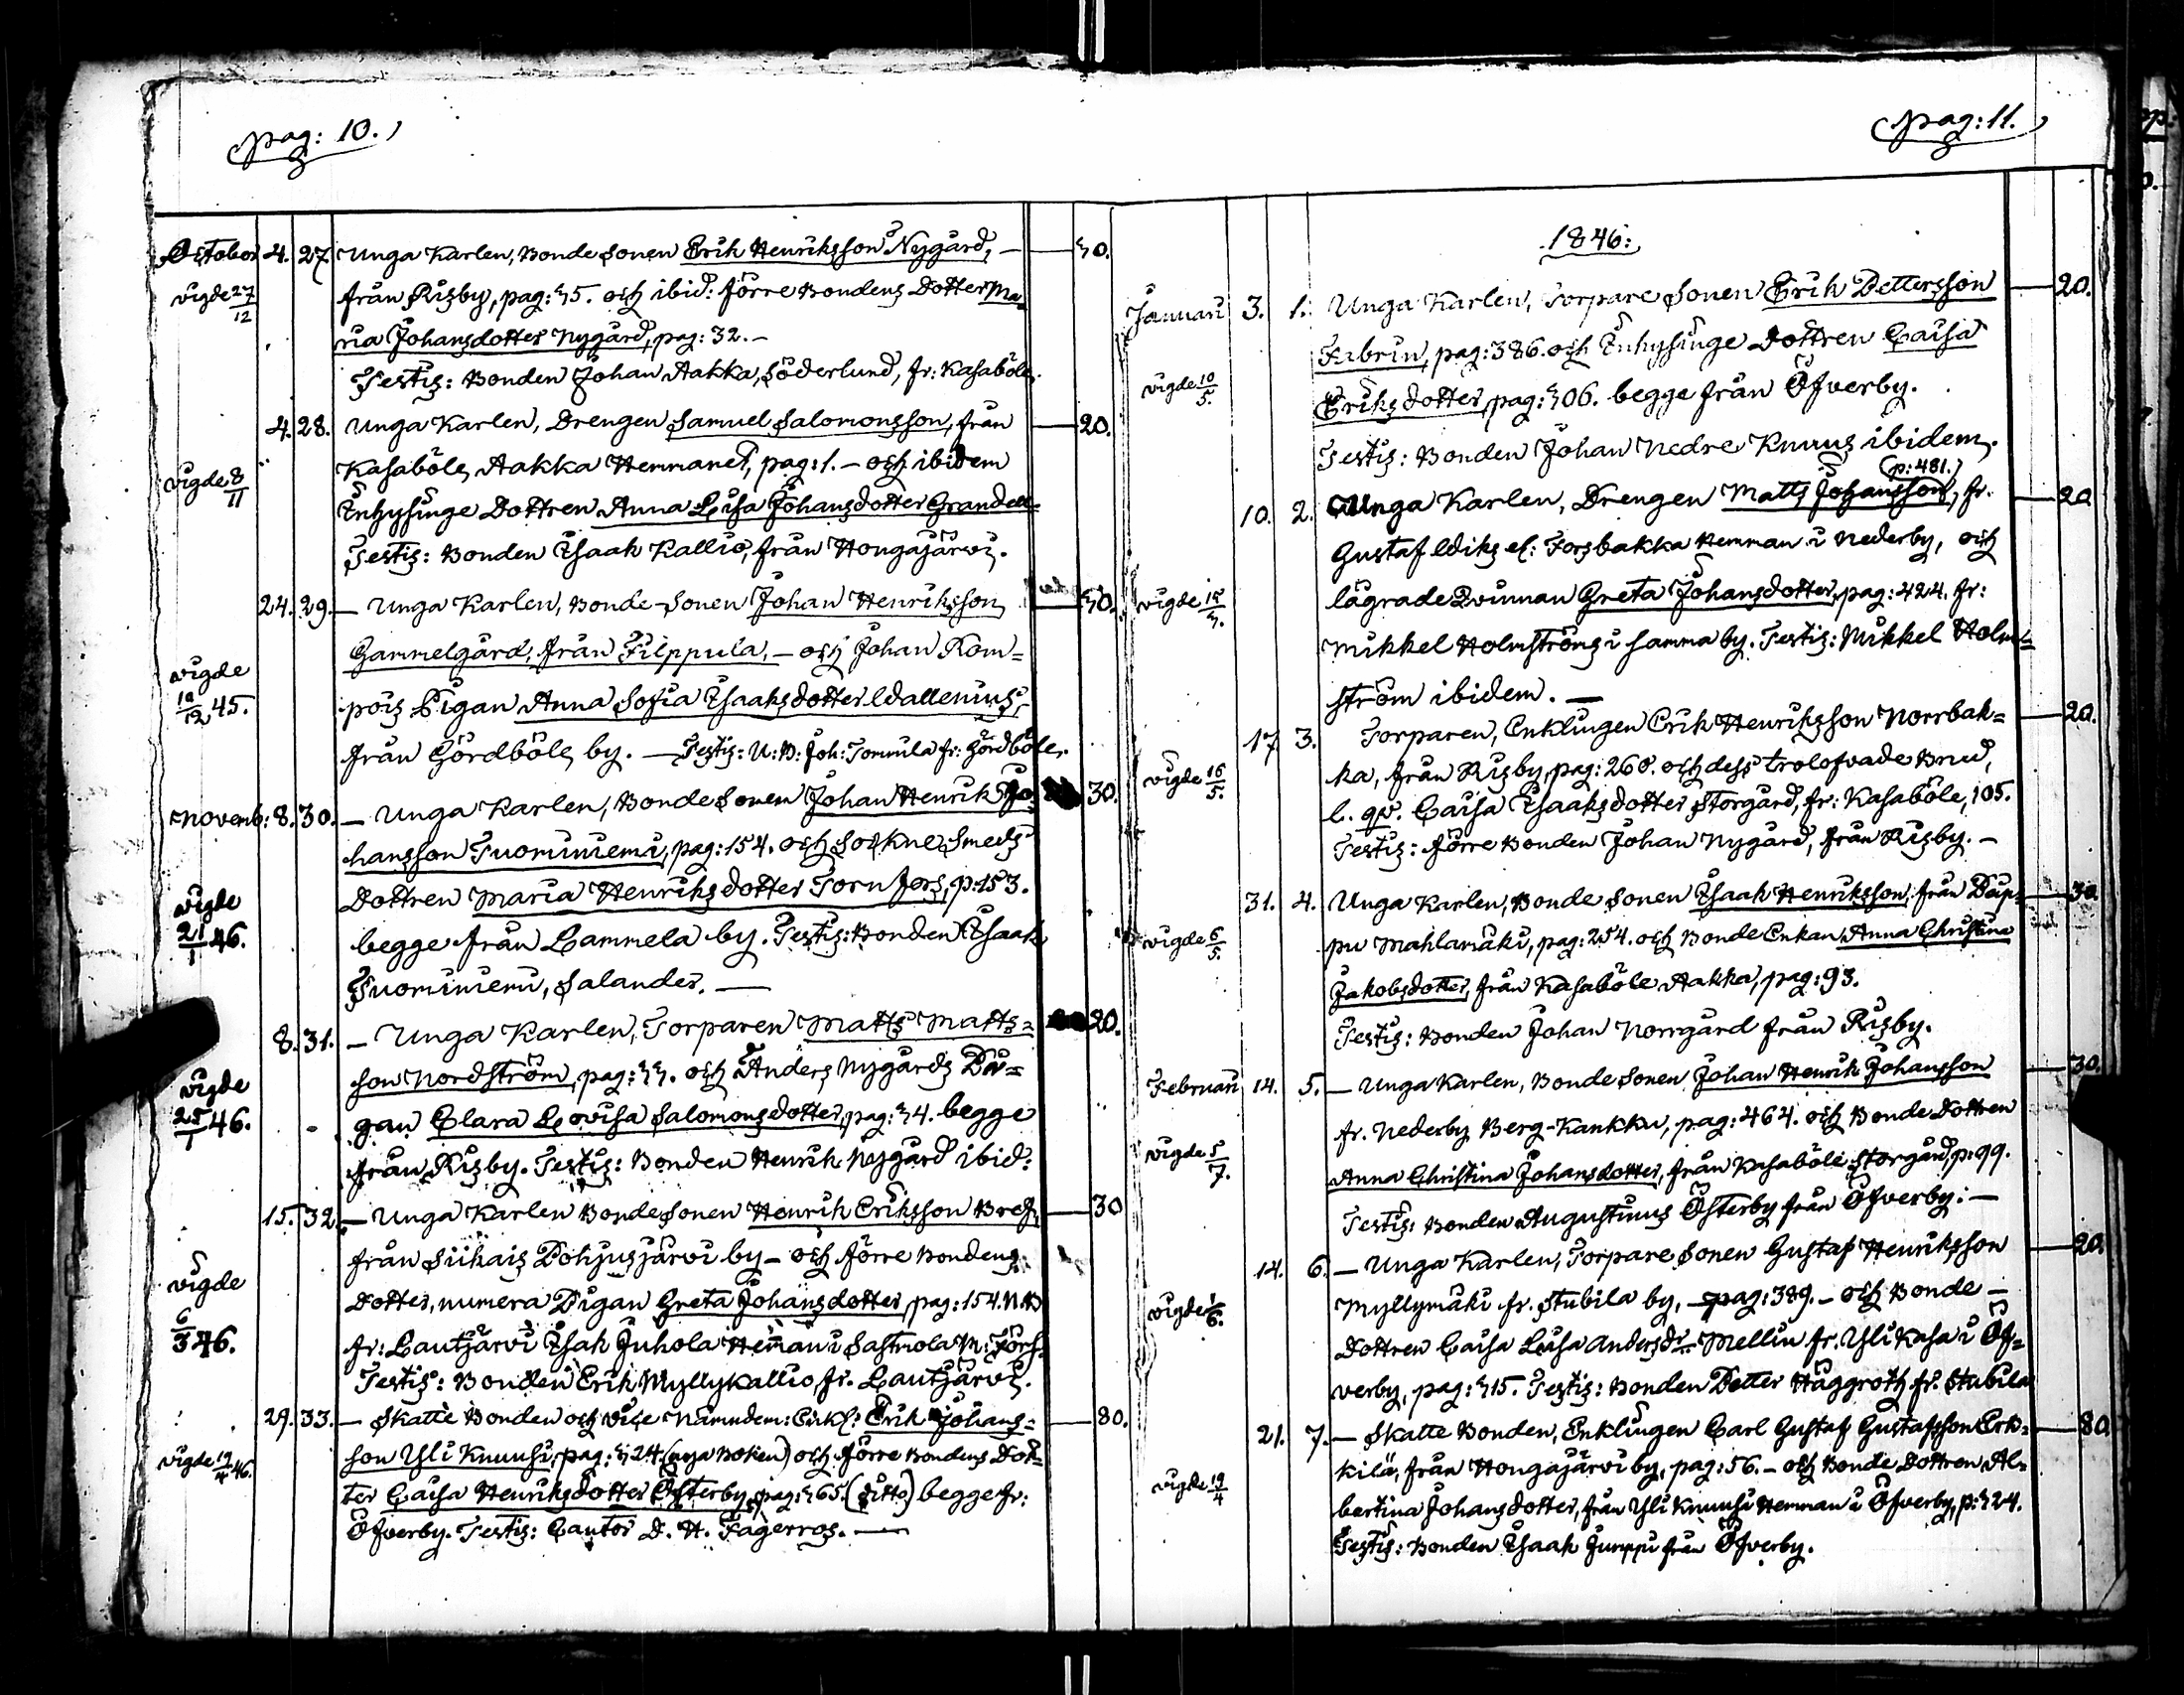 pag: 10.
October 4. 27. Unga Karlen, Bonde Sonen Erik Henriksson Nygård, — 30.
vigde 27/12 från Risby, pag: 35. och ibid: förre Bondens Dotter Ma-
ria Johansdotter Nygård, pag: 32. —
Testis: Bonden Johan Aakka, Söderlund, fr: Kasaböle.
4. 28. Unga Karlen, Drengen Samuel Salomonsson, från — 20.
Kasaböle, Aakka Hemmanet, pag: 1. — och ibidem
vigde 8/11 Inhysinge Dottren Anna Lisa Johansdotter Grandell
Testis: Bonden Isaak Kallio, från Hongajärvi.
24. 29. — Unga Karlen, Bonde-Sonen Johan Henriksson — 30.
Gammelgård, från Filppula, — och Johan Rom=
vigde 19/12 45. pois Pigan Anna Sofia Isaaksdotter Wallenius,
från Gördböle by. — Testis: N: B: Joh: Tommila fr: Gördböle.
Novemb: 8. 30. — Unga Karlen, Bonde Sonen Johan Henrik Jo- 30.
hansson Tuominiemi, pag: 154. och Sockne Smeds
Dottren Maria Henriksdotter Tornfors, p: 153.
vigde 21/1 46. begge från Lammela by. Testis: Bonden Isaak
Tuominiemi, Salander. —
8. 31. — Unga Karlen, Torparen Matts Matts= 20.
son Nordström, pag: 33. och Anders Nygårds Pi=
vigde 25/1 46. gan Clara Lovisa Salomonsdotter, pag: 34. begge
från Risby. Testis: Bonden Henrik Nygård ibid:
15. 32. — Unga Karlen Bonde Sonen Henrik Eriksson Bref, — 30
från Siikais Pohjusjärvi by — och förre Bondens
vigde 6/3 46. Dotter, numera Pigan Greta Johansdotter, pag: 154. N.B
fr: Lautjärvi Isak Juhola Heman i Sastmola M: Förs.
Testis: Bonden Erik Myllykallio, fr. Lautjärvi.
29. 33. — Skatte Bonden och Vice Nämndem: Enkl: Erik Johans= — 80.
vigde 19/4 46. son Yli Knuusi, pag: 324. (nya Boken) och förre Bondens Dot-
ter Caisa Henriksdotter Österby, pag: 365. (ditto) begge fr:
Öfverby. Testis: Cantor D. H. Fagerros. —
pag: 11.
1846:
Januari 3. 1. Unga Karlen, Torpare Sonen Erik Pettersson — 20.
Fabrin, pag: 386. och Inhysinge Dottren Caisa
vigde 10/5. Eriksdotter, pag: 306. begge från Öfverby.
Testis: Bonden Johan Nedre Knuus ibidem.
(p: 481.)
10. 2. Unga Karlen, Drengen Matts Johansson, fr. — 20
Gustaf Wiks el: Forsbakka Hemman i Nederby, och
vigde 15/3. lägrade Qvinnan Greta Johansdotter, pag: 424. fr:
Mikkel Holmströms i samma by. Testis: Mikkel Holm=
ström ibidem. —
17. 3. Torparen, Enklingen Erik Henriksson Norrbak= — 20.
vigde 16/5. ka, från Risby, pag: 268. och dess trolofvade Brud,
l. qv. Caisa Isaaksdotter Storgård, fr: Kasaböle, 105.
Testis: förre Bonden Johan Nygård, från Risby. —
31. 4. Unga Karlen, Bonde Sonen Isaak Henriksson, från Påp- — 30.
vigde 6/5. pu Mahlamäki, pag: 254. och Bonde Enkan Anna Christina
Jakobsdotter, från Kasaböle Aakka, pag: 93.
Testis: Bonden Johan Norrgård från Risby.
Februari 14. 5. — Unga Karlen, Bonde Sonen Johan Henrik Johansson — 30.
fr. Nederby Berg-Kankku, pag: 464. och Bonde Dottren
vigde 5/7. Anna Christina Johansdotter, från Kasaböle Storgård, p: 99.
Testis: Bonden Augustinus Österby från Öfverby: —
14. 6. — Unga Karlen, Torpare Sonen Gustaf Henriksson — 20.
vigde 1/6. Myllymäki fr. Stubila by, — pag: 389. — och Bonde —
Dottren Caisa Lisa Andersdr. Mellin fr. Yli Kasa i Öf=
verby, pag: 315. Testis: Bonden Petter Häggroth fr. Stubila
21. 7. — Skatte Bonden, Enklingen Carl Gustaf Gustafsson Erk= — 80.
kilä, från Hongajärvi by, pag: 56. — och Bonde Dottren Al-
vigde 19/4 bertina Johansdotter, från Yli Knuusi Hemman i Öfverby, p: 324.
Testis: Bonden Isaak Jumppu från Öfverby.